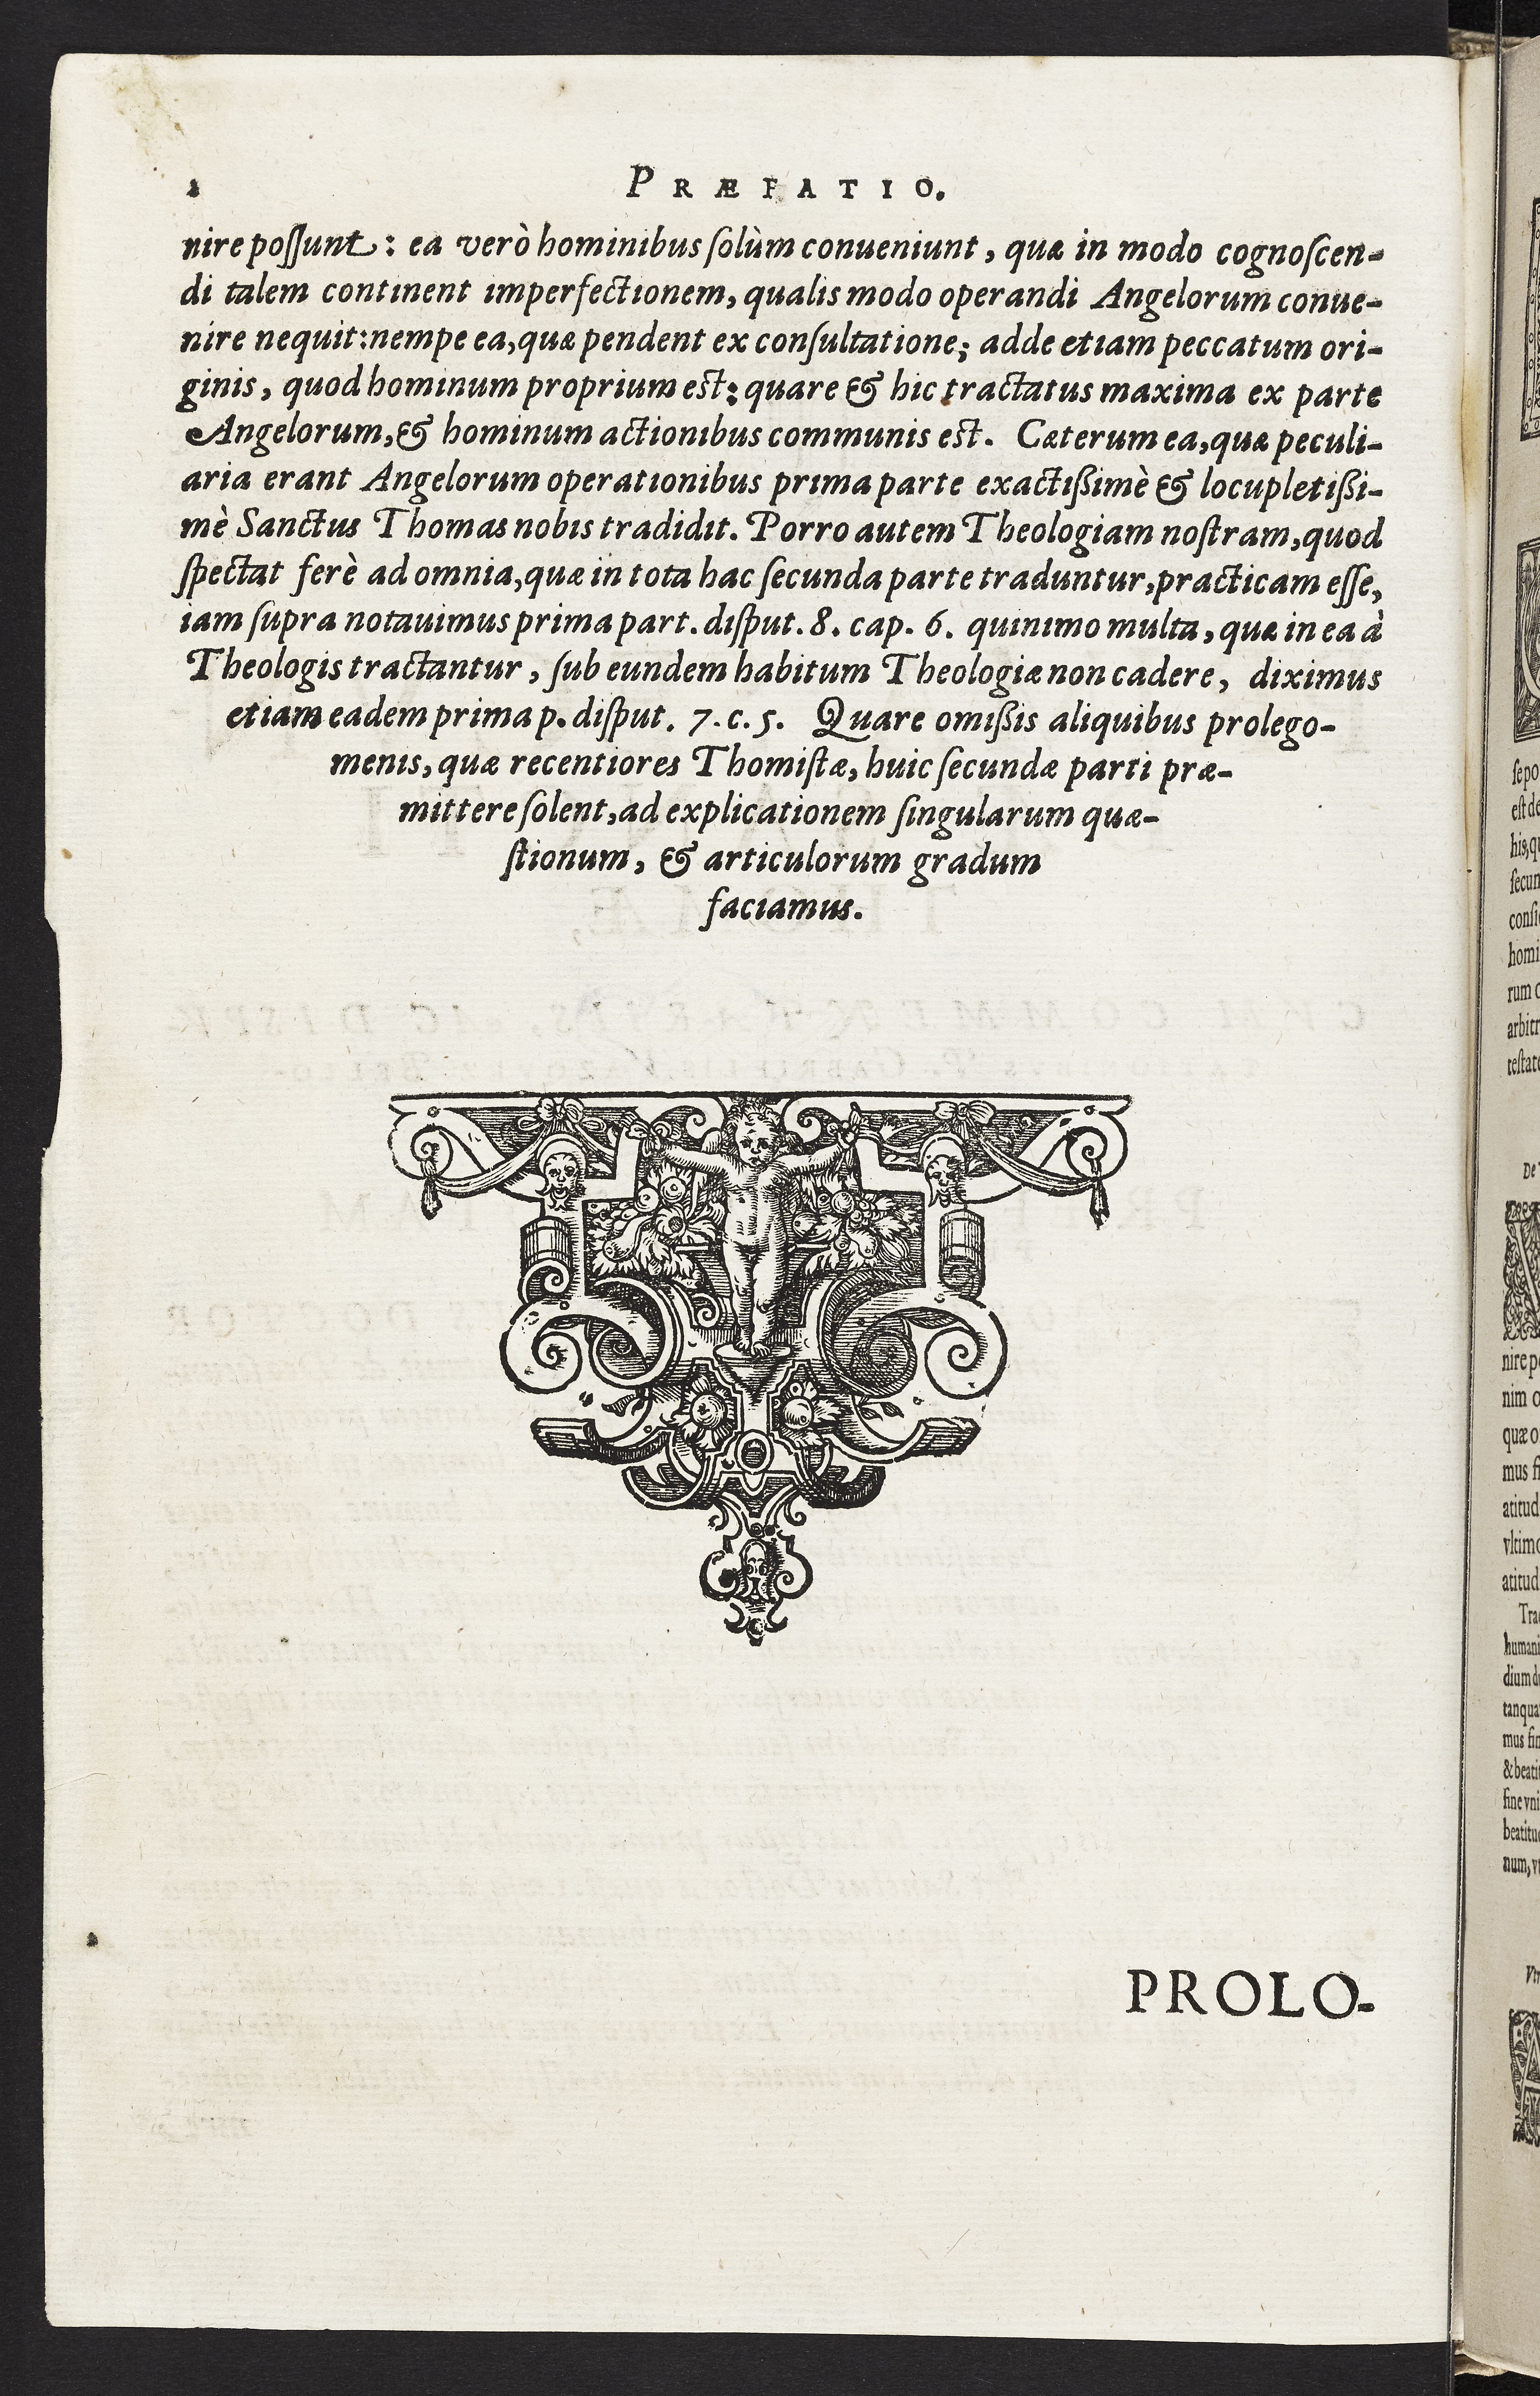 2 PRÆFATIO.
nire poſſunt: ea verò hominibus ſolùm conueniunt, quæ in modo cognoſcen-
di talem continent imperfectionem, qualis modo operandi Angelorum conue-
nire nequit: nempe ea, quæ pendent ex conſultatione; adde etiam peccatum ori-
ginis, quod hominum proprium est: quare & hic tractatus maxima ex parte
Angelorum, & hominum actionibus communis est. Cæterum ea, quæ peculi-
aria erant Angelorum operationibus prima parte exactißimè & locupletißi-
mè Sanctus Thomas nobis tradidit. Porro autem Theologiam noſtram, quod
ſpectat ferè ad omnia, quæ in tota hac ſecunda parte traduntur, practicam eſſe,
iam ſupra notauimus prima part. diſput. 8. cap. 6. quinimo multa, quæ in ea à
Theologis tractantur, ſub eundem habitum Theologiæ non cadere, diximus
etiam eadem prima p. diſput. 7. c. 5. Quare omißis aliquibus prolego-
menis, quæ recentiores Thomiſtæ, huic ſecundæ parti præ-
mittere ſolent, ad explicationem ſingularum quæ-
ſtionum, & articulorum gradum
faciamus.
PROLO-
ſepo
eſt de
his, q
ſecun
conſi
homi
rum c
arbitr
teſtat
De
nire p
nim o
quæ o
mus fi
atitud
vltimo
atitud
Tra
humani
dium d
tanqua
mus fin
& beati
fine vni
beatitu
num, v
Vtr